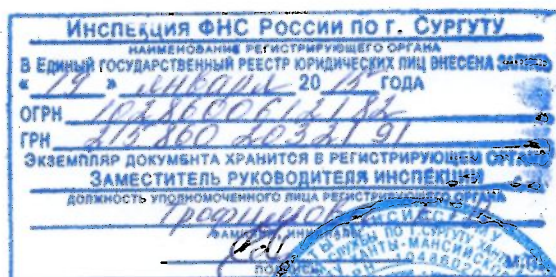 ИНСПЕКЦИЯ ФНС РОССИИ ПО Г. СУРГУТУ
НАИМЕНОВАНИЕ РЕГИСТРИРУЮЩЕГО ОРГАНА
В ЕДИНЫЙ ГОСУДАРСТВЕННЫЙ РЕЕСТР ЮРИДИЧЕСКИХ ЛИЦ ВНЕСЕНА ЗАПИСЬ
« 19 » января 2015 ГОДА
ОГРН 1028600612182
ГРН 2158602032191
ЭКЗЕМПЛЯР ДОКУМЕНТА ХРАНИТСЯ В РЕГИСТРИРУЮЩЕМ ОРГАНЕ
ЗАМЕСТИТЕЛЬ РУКОВОДИТЕЛЯ ИНСПЕКЦИИ
ДОЛЖНОСТЬ УПОЛНОМОЧЕННОГО ЛИЦА РЕГИСТРИРУЮЩЕГО ОРГАНА
ФАМИЛИЯ, ИНИЦИАЛЫ
ПОДПИСЬ
М.П.